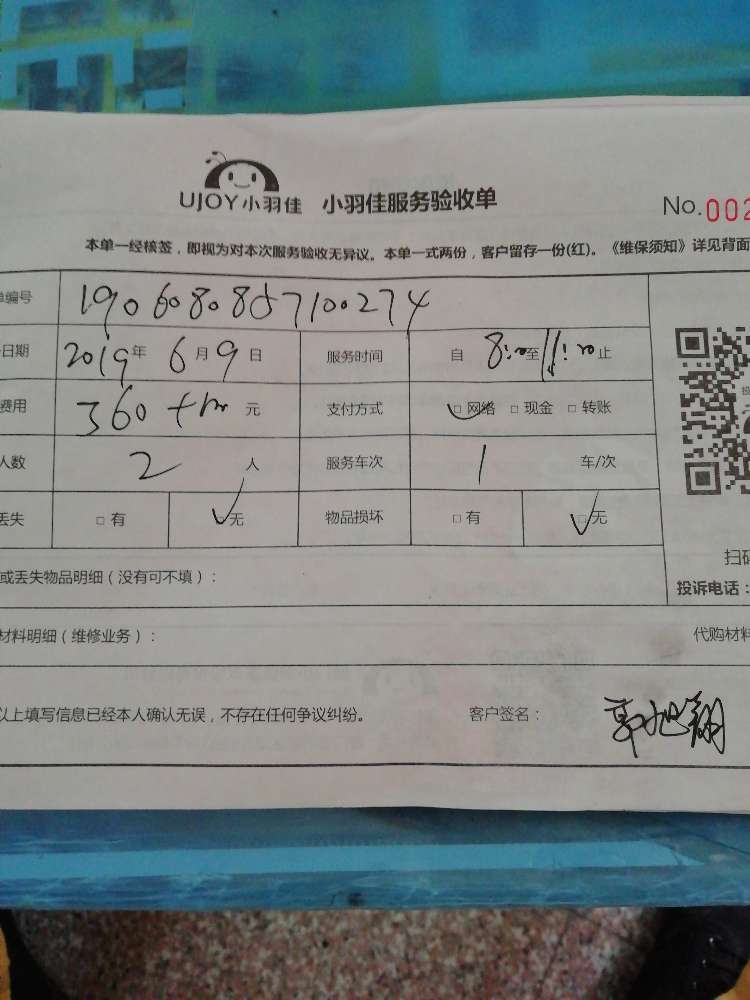 UJOY小羽佳 小羽佳服务验收单 No.002
本单一经核签，即视为对本次服务验收无异议。本单一式两份，客户留存一份(红)。《维保须知》详见背面
单编号 1906080857100274
日期 2019年 6月9日 服务时间 自 8:00至11:00止
费用 360 元 支付方式 ☑网络 □现金 □转账
人数 2 人 服务车次 1 车/次
丢失 □有 ☑无 物品损坏 □有 ☑无
扫码
或丢失物品明细（没有可不填）：
投诉电话：
材料明细（维修业务）： 代购材料
以上填写信息已经本人确认无误，不存在任何争议纠纷。 客户签名： 郭旭翔